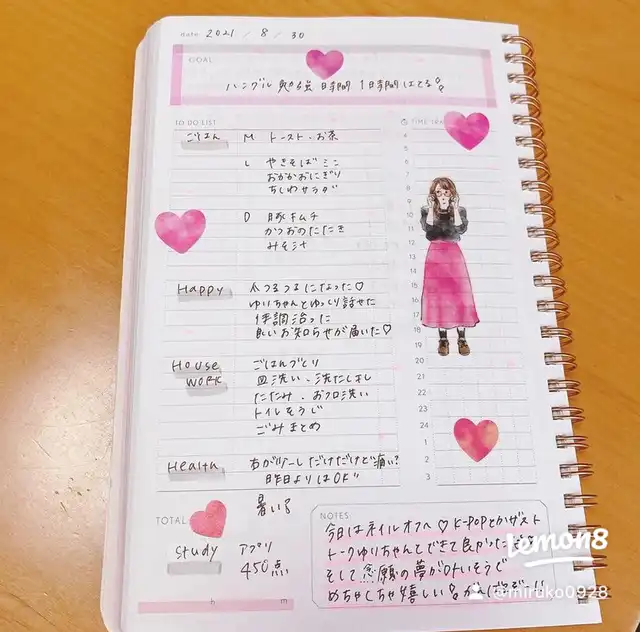 date 2021 / 8 / 30
GOAL
ハングル 勉強 日時間 1日時間はとる
TO DO LIST
TIME TRA
ごはん M トースト・お茶
L やきそばミニ
おかかおにぎり
ちしゃサラダ
D 豚キムチ
かつおのたたき
みそ汁
Happy 爪つるつるになった♡
ゆりちゃんとゆっくり話せた
体調治った
良いお知らせが届いた♡
HOUSE WORK ごはんづくり
皿洗い・洗たくほし
たたみ・お風呂洗い
トイレそうじ
ごみまとめ
Health 少しだけだけど痛い?
昨日よりはOK
暑い
4
5
6
7
8
9
10
11
12
13
14
15
16
17
18
19
20
21
22
23
24
1
2
3
TOTAL
study アプリ
450点
h m
NOTES
今日はネイルオフへ♡ K-POPとか
トークゆりちゃんとできて良かった
そして念願の夢が叶いそうで
めちゃくちゃ嬉しい
lemon8
@miruko0928